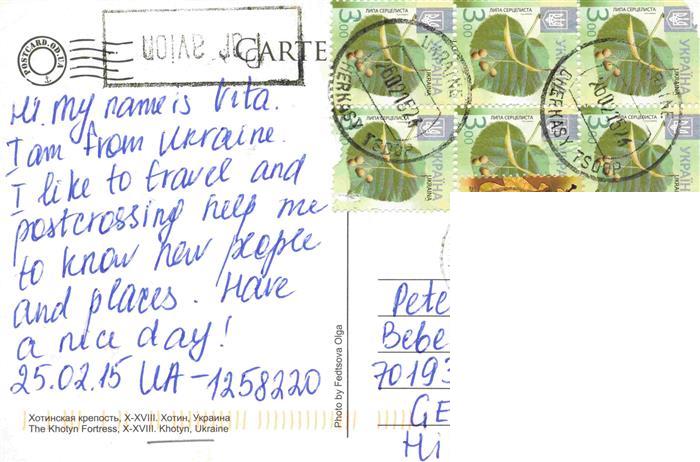 POSTCARD.OD.UA
PAR AVION
CARTE
Hi. My name is Vita.
I am from Ukraine.
I like to travel and
postcrossing help me
to know new people
and places. Have
a nice day!
25.02.15 UA-1258220
Хотинская крепость, X-XVIII. Хотин, Украина
The Khotyn Fortress, X-XVIII. Khotyn, Ukraine
Photo by Fedtsova Olga
3.00 ЛИПА СЕРЦЕЛИСТА УКРАЇНА UKRAINE
3.00 ЛИПА СЕРЦЕЛИСТА УКРАЇНА UKRAINE
3.00 ЛИПА СЕРЦЕЛИСТА УКРАЇНА UKRAINE
3.00 ЛИПА СЕРЦЕЛИСТА УКРАЇНА UKRAINE
3.00 ЛИПА СЕРЦЕЛИСТА УКРАЇНА
3.00 ЛИПА СЕРЦЕЛИСТА УКРАЇНА UKRAINE
CHERKASY
CHERKASY
Pete
Bebe
70193
GE
Mi